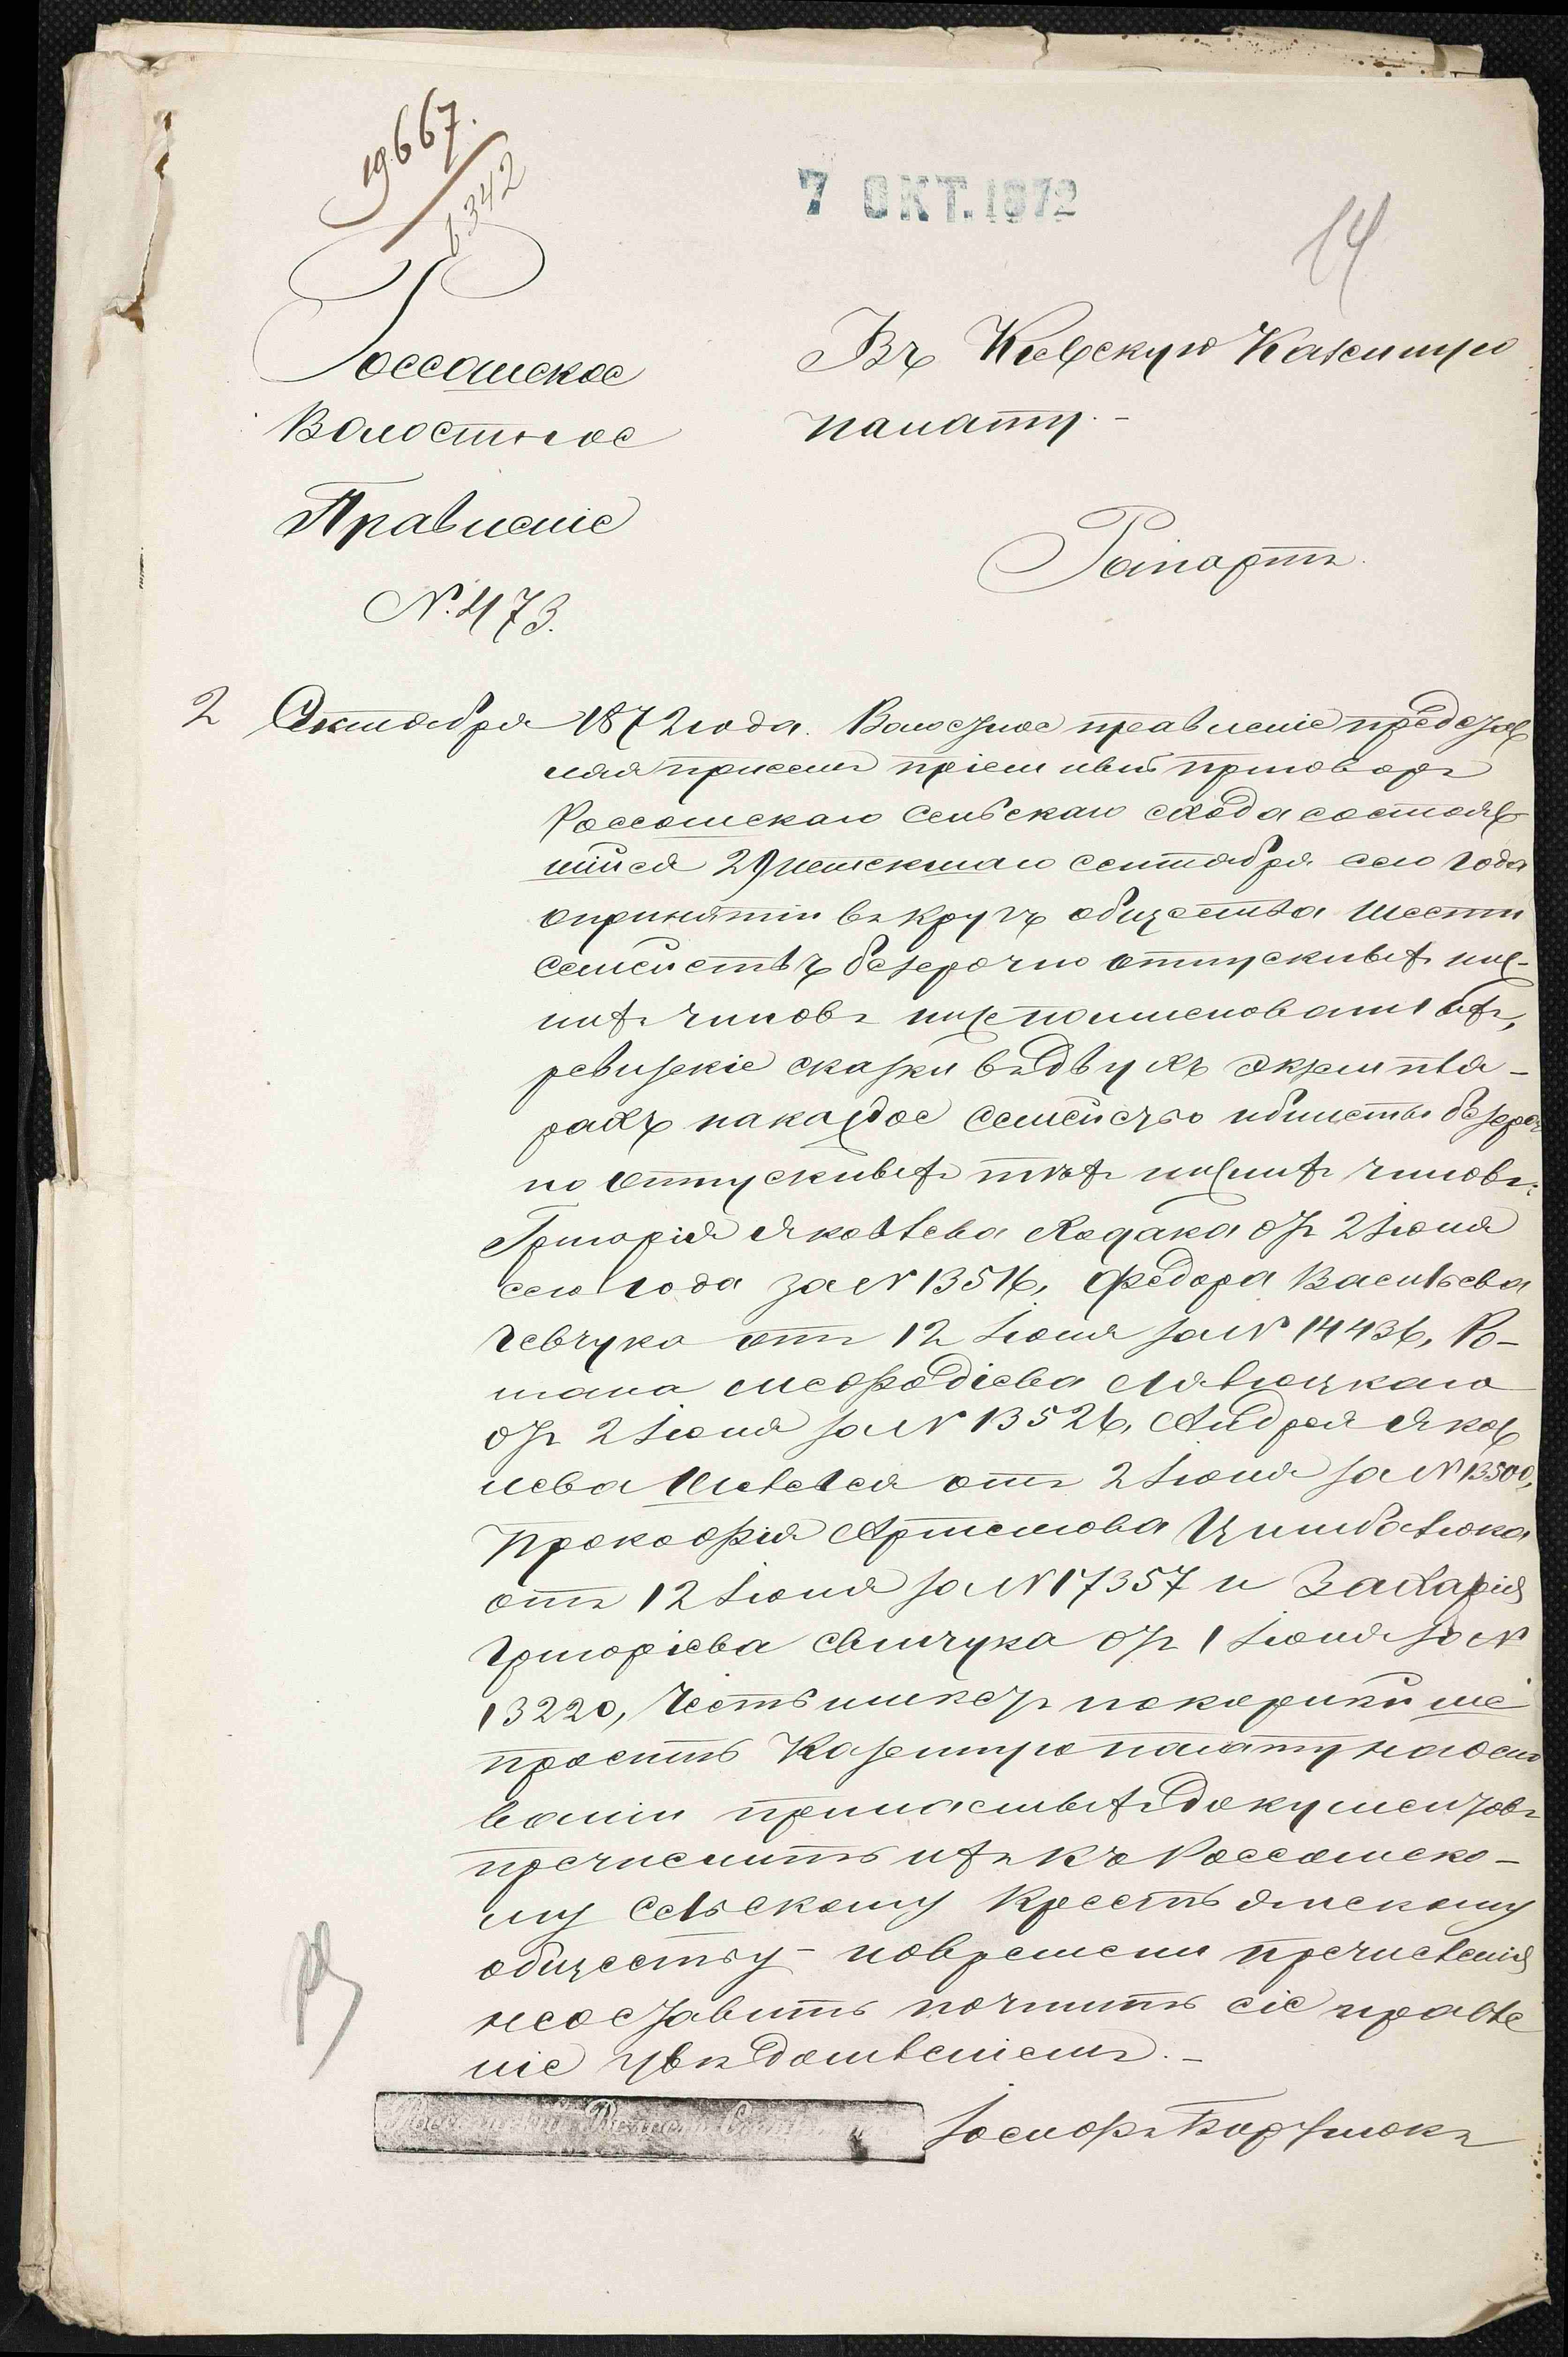 19667.
1342
7 ОКТ. 1872
14
Россошское
Волостное
Правленіе
№. 473.
Въ Кіевскую Казенную
палату. -
Рапортъ.
2 Октября 1872 года. Волостное правленіе представ
ляя присемъ пріемный приговоръ
Россошскаго сельскаго схода состояв
шійся 29 истекшаго сентября сего года
опринятіи въ кругъ общества шести
семействъ безсрочно отпускныхъ ниж-
нихъ чиновъ нижепоименованныхъ,
ревизскіе сказки въ двухъ экземпля-
рахъ на каждое семейство и билеты безсроч
но отпускныхъ тѣхъ нижнихъ чиновъ:
Григорія Яковлева от 2 Іюня
сего года за № 13516, Федора Васильева
отъ 12 Іюня за № 14436, Ро-
мана Мефодіева
от 2 Іюня за № 13526, Андрея Яков
лева отъ 2 Іюня за № 13500,
Прокофія Артемова Цимбалюка
отъ 12 Іюня за № 17357 и Захарія
Григоріева от 1 Іюня за №
13220, Честь имѣетъ покорнѣйше
просить Казенную палату на осно
ваніи прилагаемыхъ документовъ
пречислить ихъ къ Россошско-
му сельскому Крестьянскому
обществу - повремени пречисленія
неоставить почтить сіе правле
ніе увѣдомленіемъ. -
Іосифъ